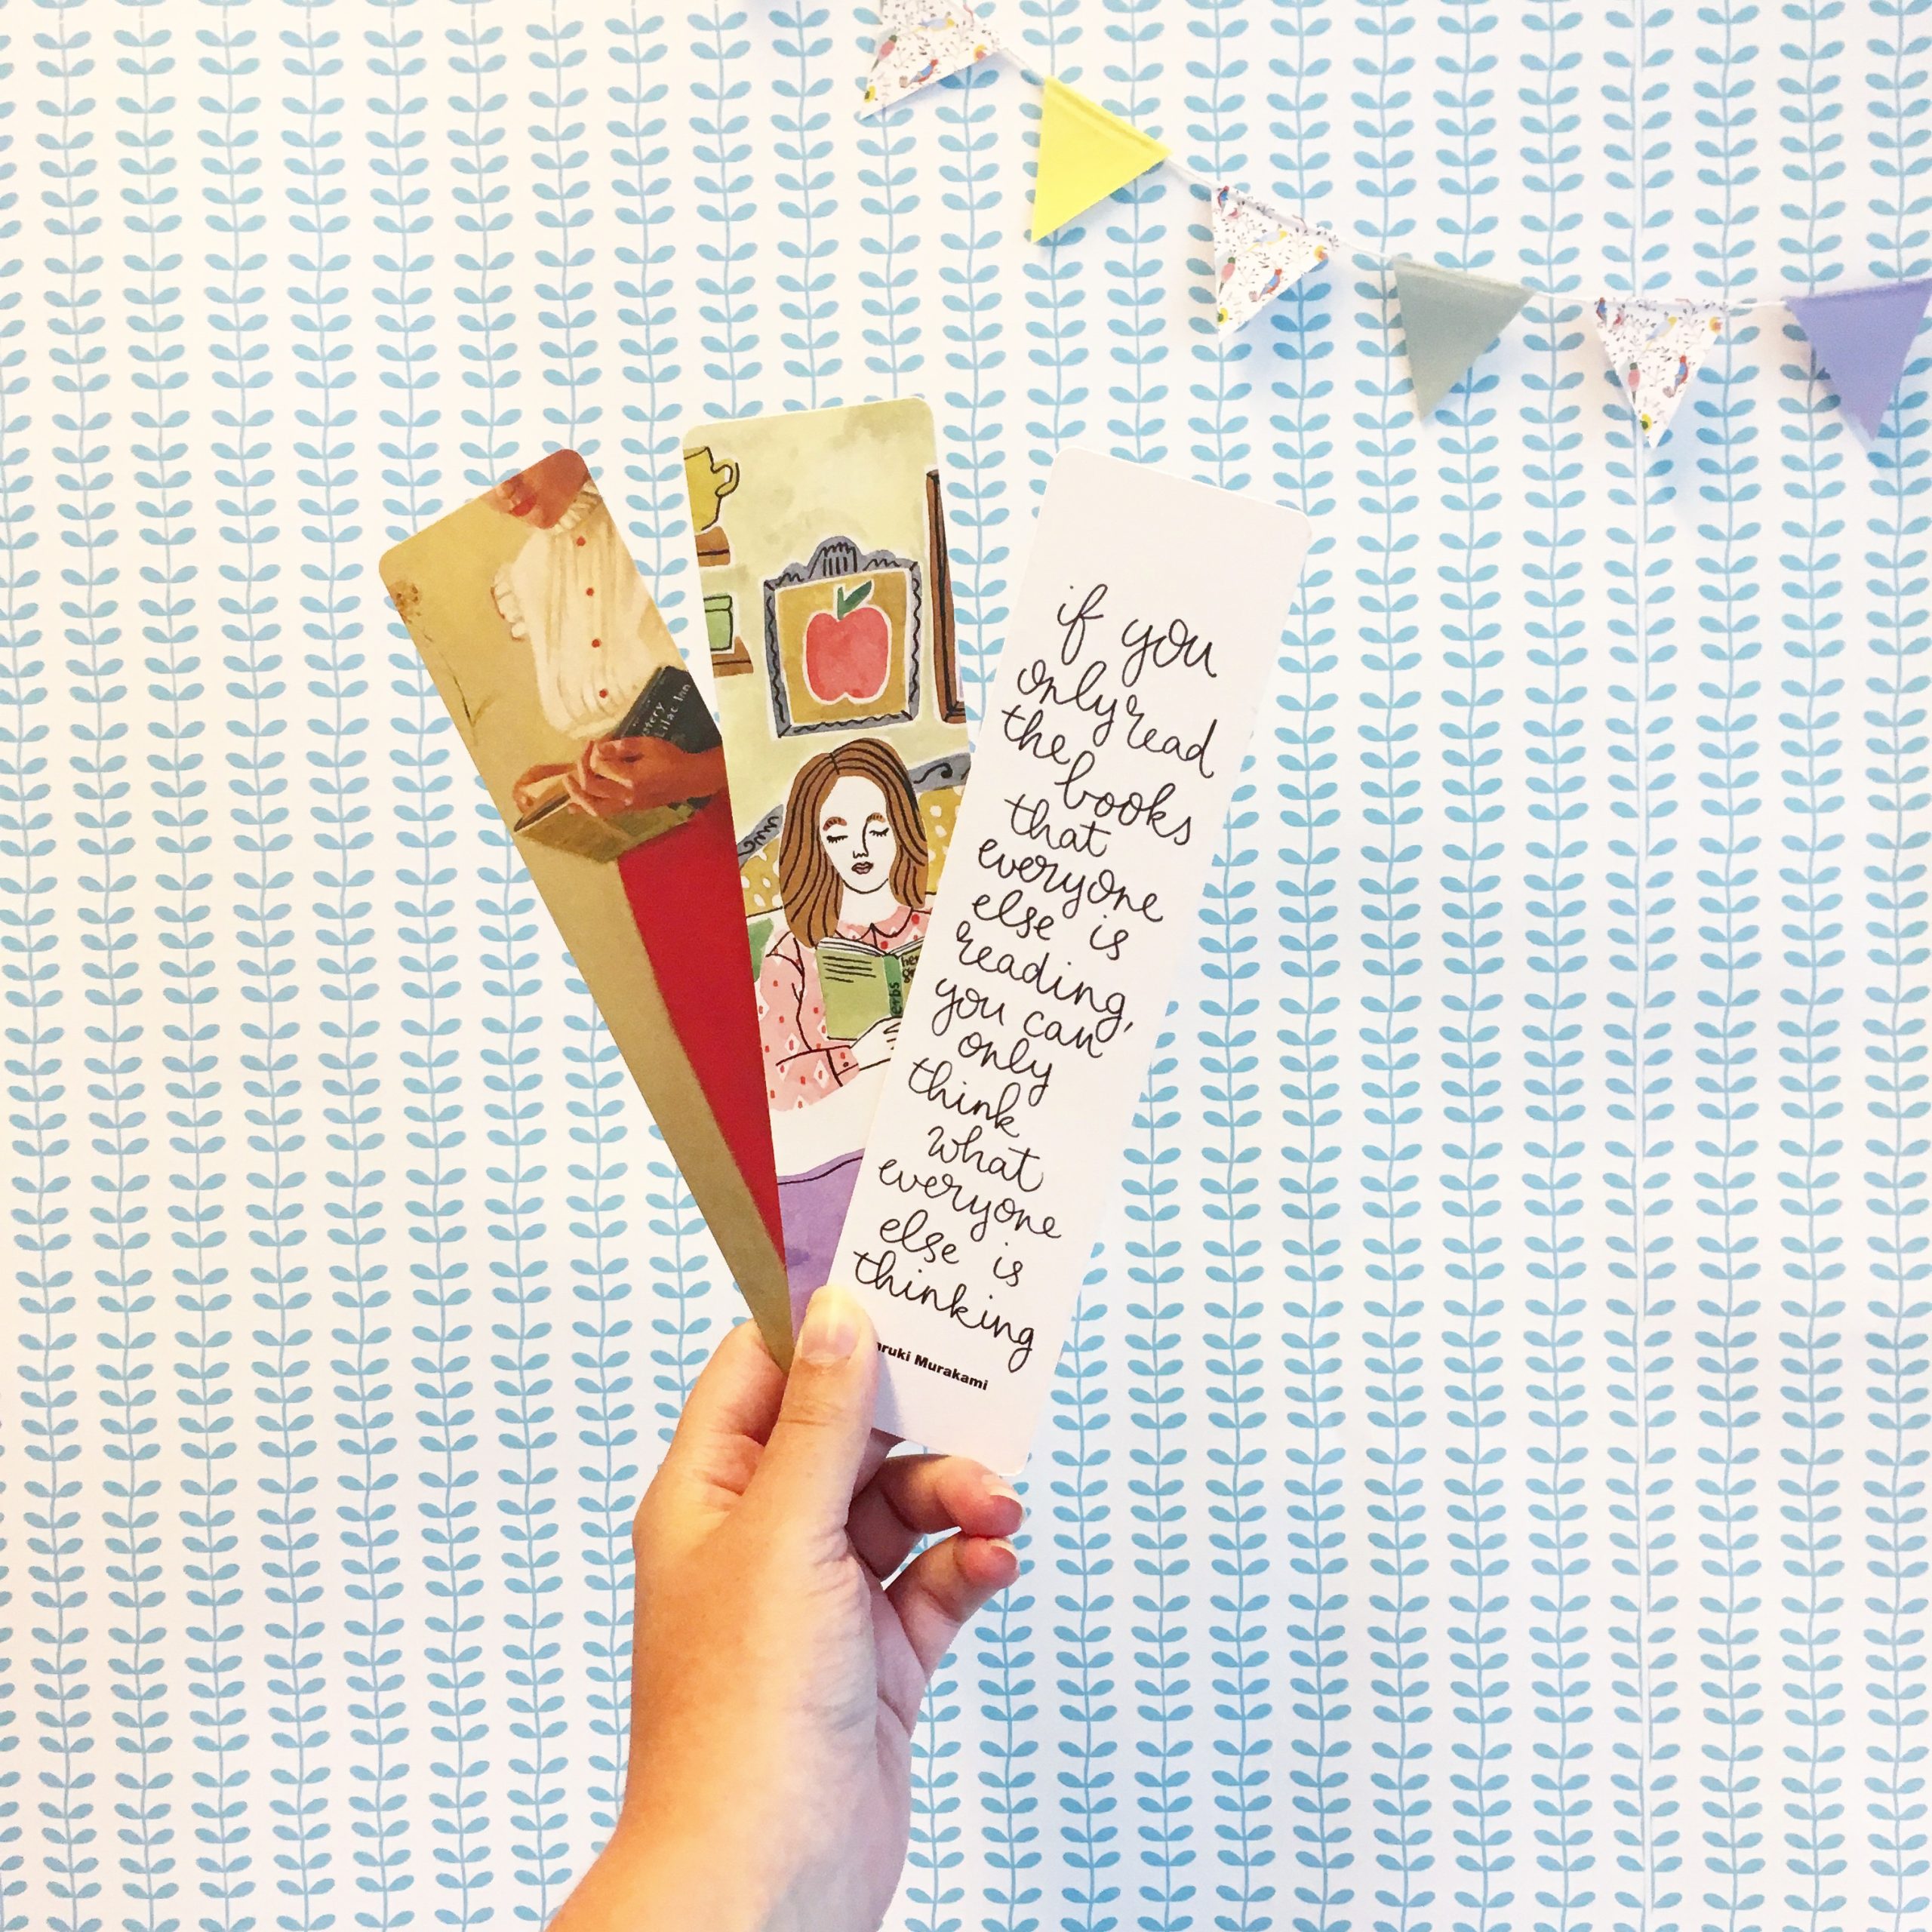 if you
only read
the
books
that
everyone
else is
reading,
you can
only
think
what
everyone
else is
thinking
aruki Murakami
stery
Lilac Inn
erbs